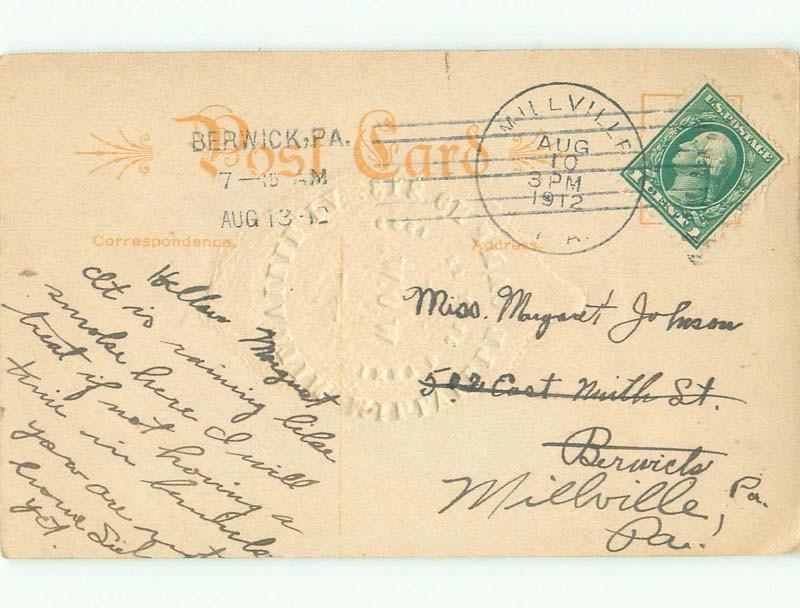 Post Card
BERWICK, PA.
7—15 AM
AUG 13 12
MILLVILLE
AUG
10
3 PM
1912
PA.
U.S. POSTAGE
1 CENT 1
Correspondence.
Address.
Hellow Margaret
it is raining like
smoke here I will
treat if not having a
time in
you are not
home
yet.
Miss. Margaret Johnson
502 East Ninth St.
Berwick
Pa.
Millville,
Pa.